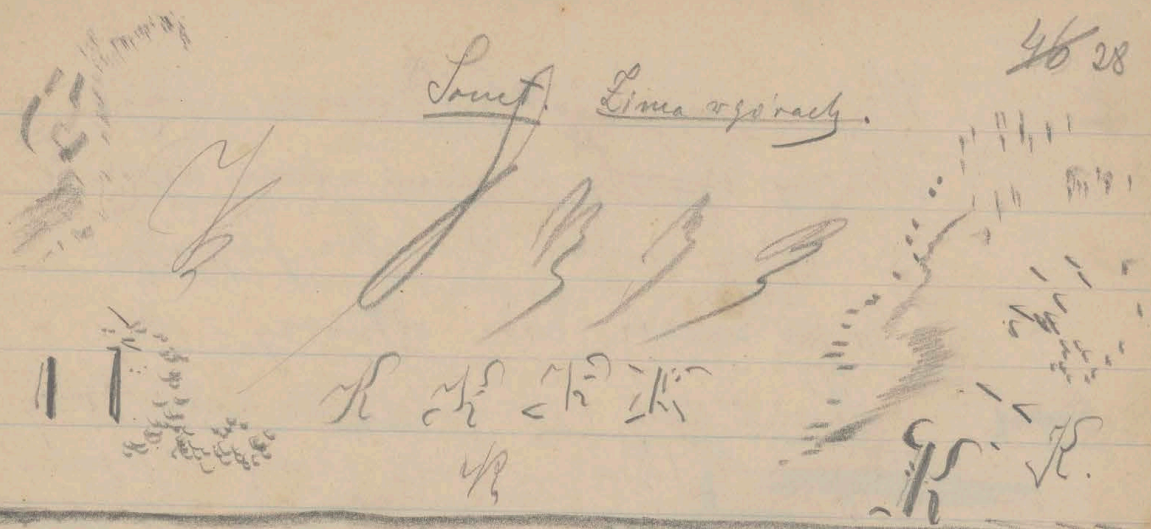 46 28
Sonet. Zima w górach.
K K K K
K K.
K